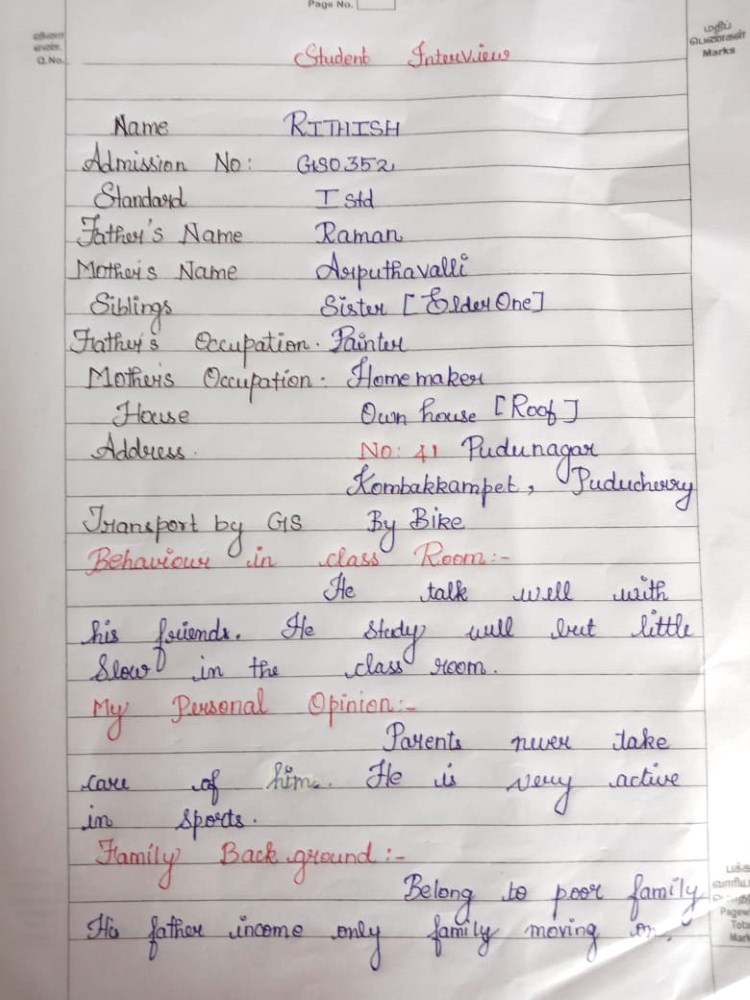 Page No.
வினா
எண்.
Q.No.
மதிப்
பெண்கள்
Marks
Student Interview
Name RITHISH
Admission No: GS0352
Standard I std
Father's Name Raman
Mother's Name Arputhavalli
Siblings Sister [Elder One]
Father's Occupation. Painter
Mother's Occupation. Homemaker
House Own house [Roof]
Address. No: 41 Pudunagar
Kombakkampet, Puducherry
Transport by GS By Bike
Behaviour in class Room:-
He talk well with
his friends. He study well but little
slow in the class room.
My Personal Opinion:-
Parents never take
care of him. He is very active
in sports.
Family Back ground:-
Belong to poor family
His father income only family moving on.
Page
Tota
Mark